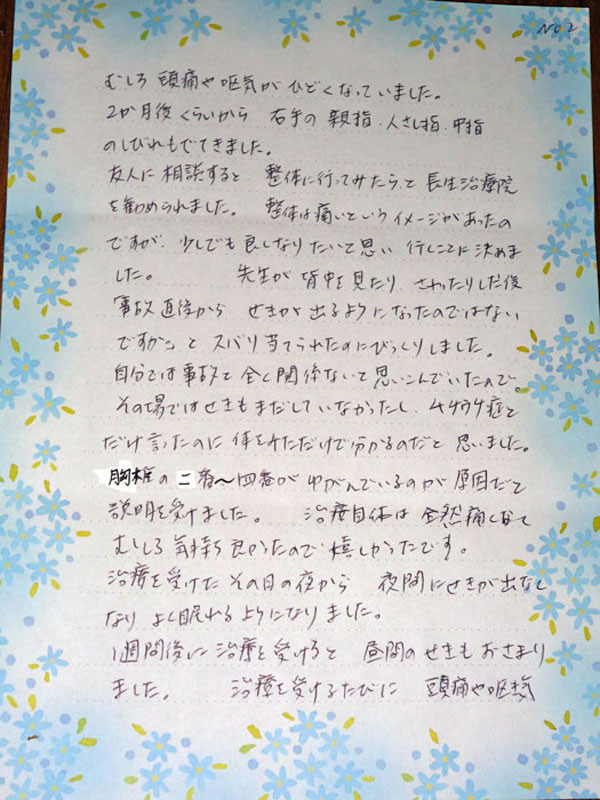 NO2
むしろ 頭痛や嘔気が ひどくなっていました。
2か月後くらいから 右手の 親指、人さし指、中指
のしびれもでてきました。
友人に相談すると 整体に行ってみたらっと 長生治療院
を勧められました。 整体は痛いというイメージがあったの
ですが、少しでも良くなりたいと思い 行くことに決めま
した。 先生が 背中を見たり、さわったりした後
事故直後から せきが出るようになったのではない
ですか?と ズバリ当てられたのにびっくりしました。
自分では事故と全く関係ないと思いこんでいたので。
その場ではせきもまだしていなかったし、ムチウチ症と
だけ言ったのに 体をみただけで分かるのだと 思いました。
胸椎の二番〜四番が ゆがんでいるのが 原因だと
説明を受けました。 治療自体は 全然痛くなくて
むしろ 気持ち良かったので 嬉しかったです。
治療を受けた その日の夜から 夜間にせきが出なく
なり よく眠れるようになりました。
1週間後に 治療を受けると 昼間のせきもおさまり
ました。 治療を受けるたびに 頭痛や嘔気